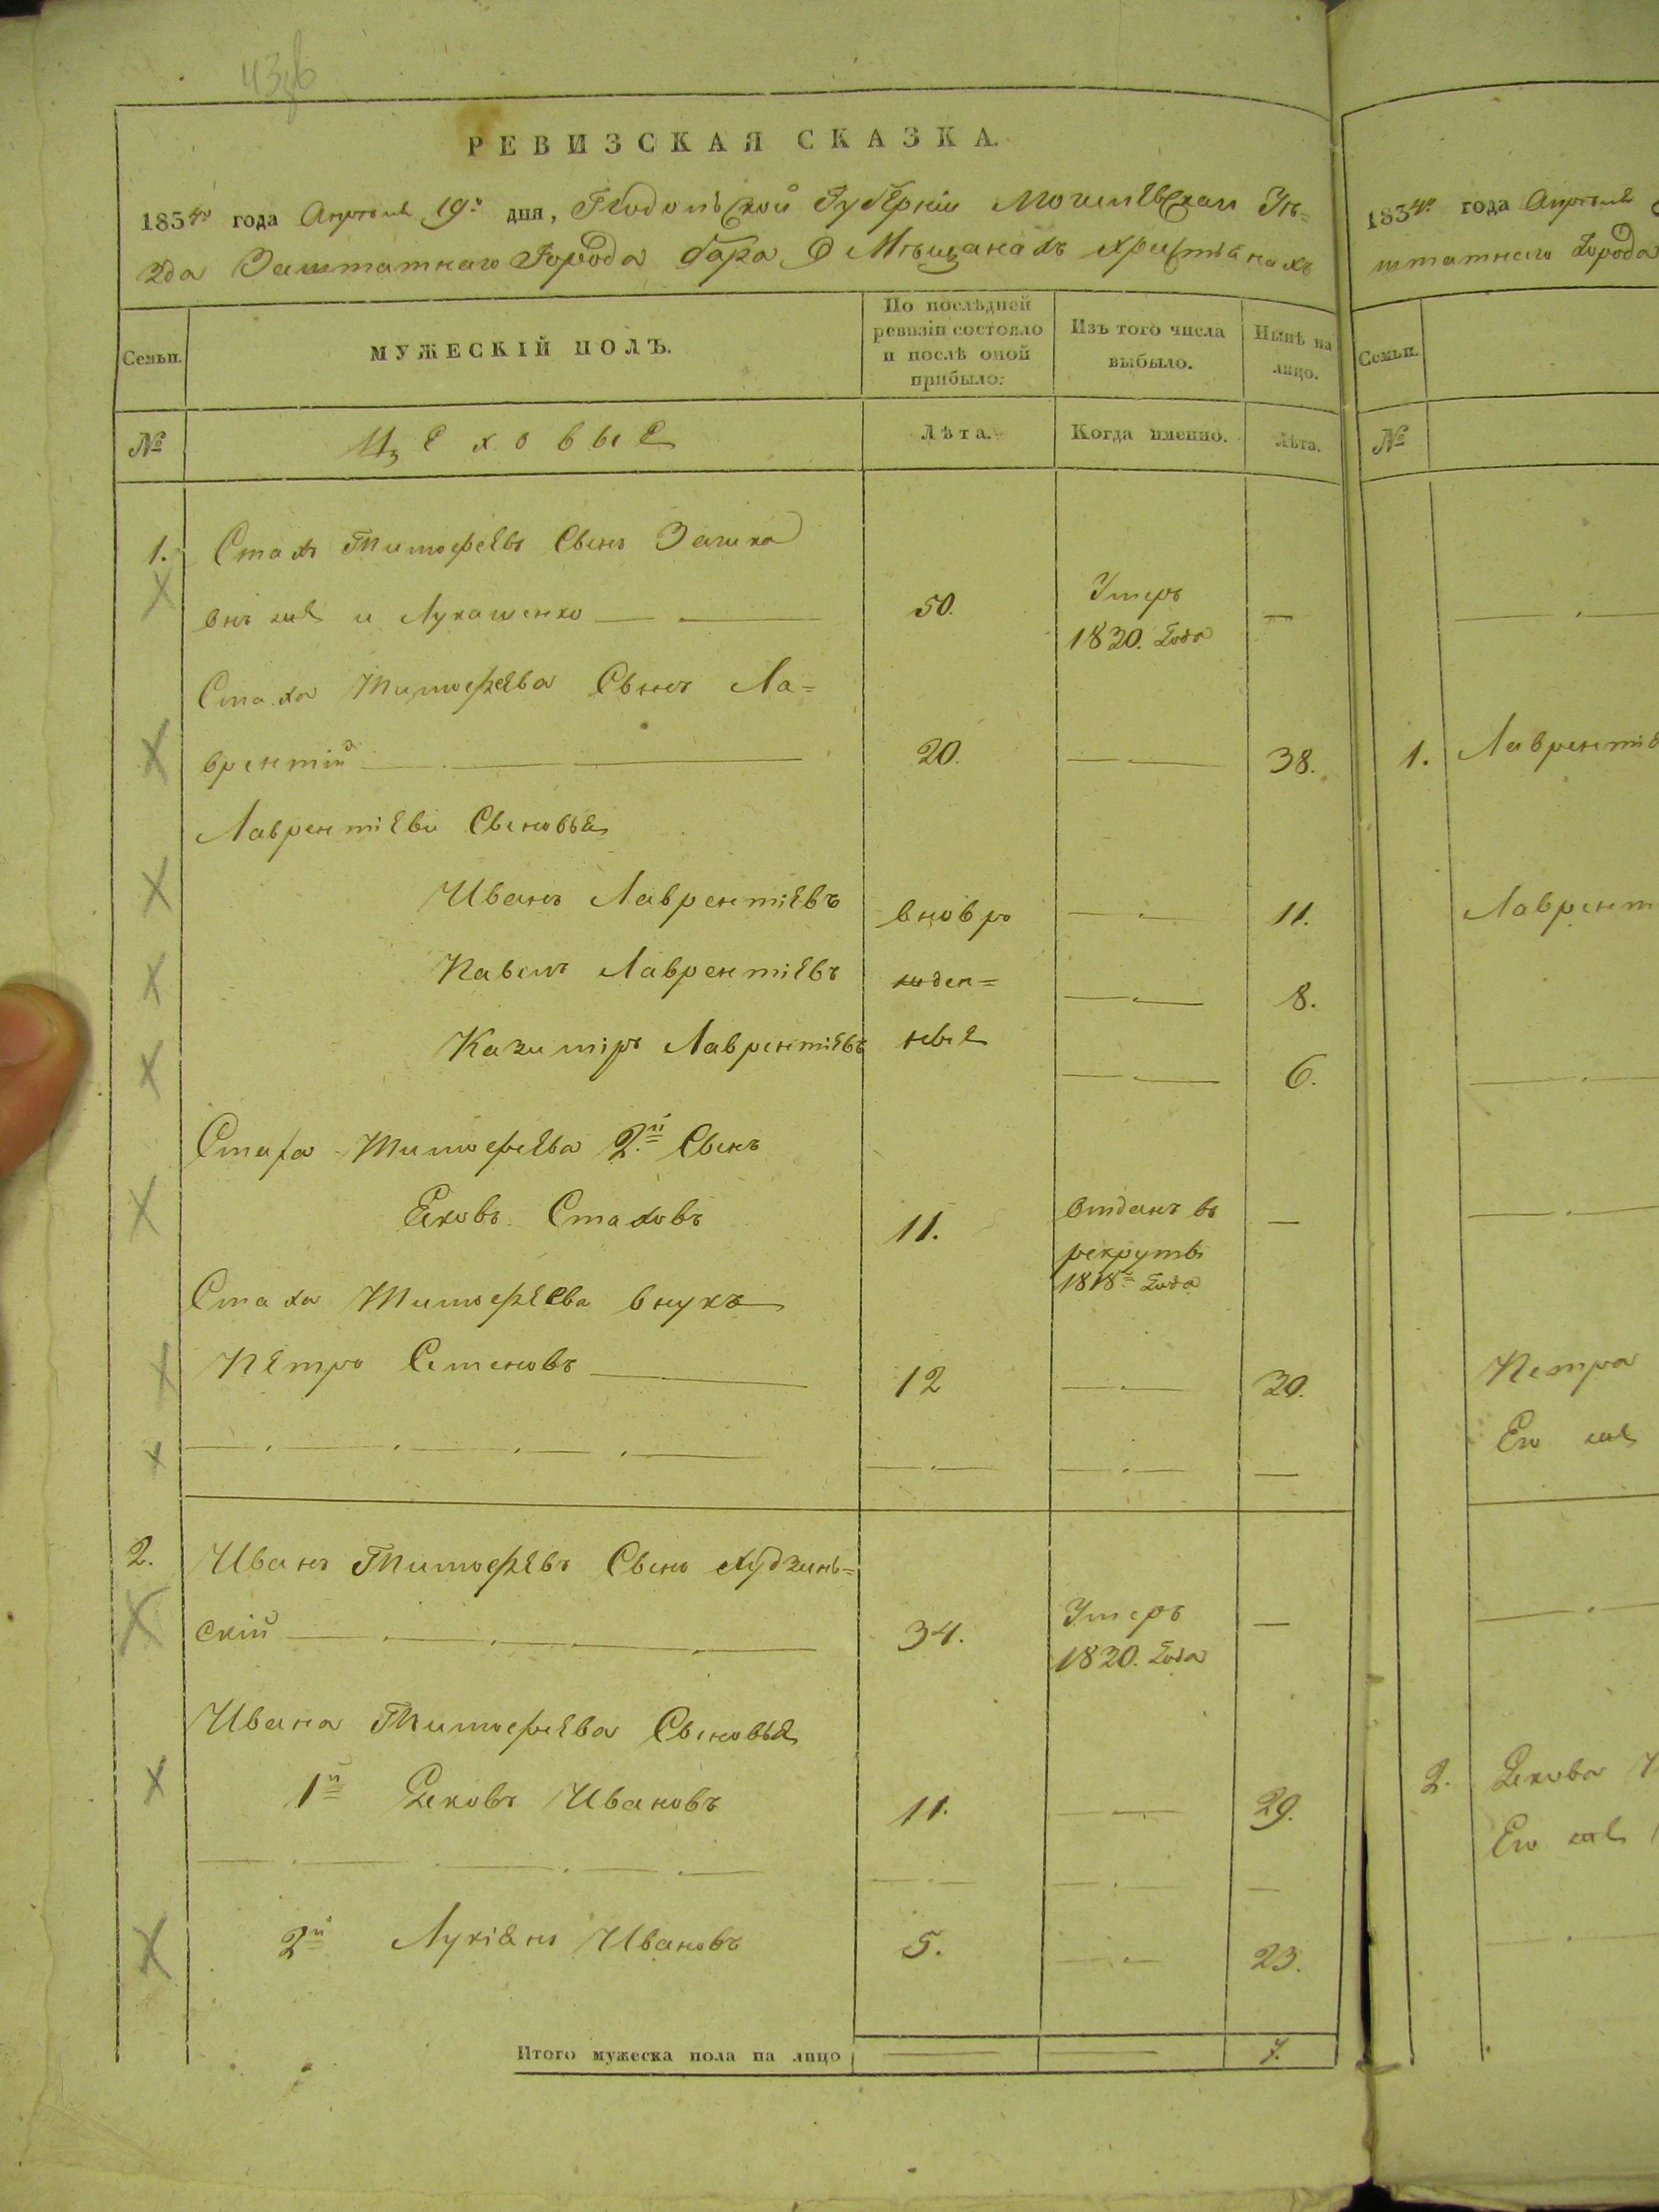 РЕВИЗСКАЯ СКАЗКА.
1834го года Апреля 19го дня, Подольской Губерніи Могилевскаго Уѣ=
зда Заштатнаго Города Бара О Мѣщанахъ Христіанахъ
Семьи.
МУЖЕСКІЙ ПОЛЪ.
По послѣдней ревизіи состояло и послѣ оной прибыло:
Изъ того числа выбыло.
Нынѣ на лицо.
№
Цеховые
Лѣта.
Когда именно.
Лѣта.
1. Стахъ Тимофеевъ Сынъ
онъ же и Лукашенко 50. Умеръ 1830. Года —
Стаха Тимофеева Сынъ Ла=
врентій 20. — 38.
Лаврентіеви Сыновья
Иванъ Лаврентіевъ вновро — 11.
Павелъ Лаврентіевъ жден= — 8.
Казимиръ Лаврентіевъ ные — 6.
Стаха Тимофеева 2й Сынъ
Яковъ Стаховъ 11. Отданъ въ рекруты 1818го Года —
Стаха Тимофеева внукъ
Петро Семеновъ 12 — 30.
2. Иванъ Тимофеевъ Сынъ Худзинь=
скій 34. Умеръ 1830. Года —
Ивана Тимофеева Сыновья
1й Яковъ Ивановъ 11. — 29.
2й Лукіянъ Ивановъ 5. — 23.
Итого мужеска пола на лицо — — 7.
1834го года Апреля
штатнаго Города
Семьи.
№
1. Лаврентіе
Лаврент
Петра
Его же
2. Якова
Его же